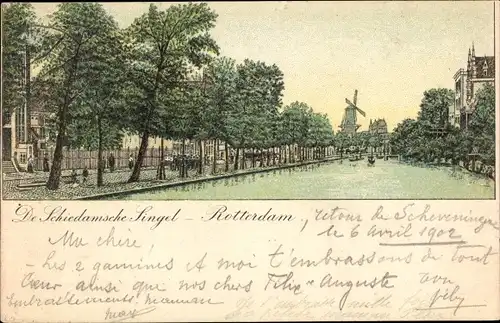 De Schiedamsche Singel – Rotterdam., retour de Scheveningen
le 6 Avril 1902
Ma chère,
– Les 2 gamines et moi t'embrassons de tout
cœur ainsi que nos chers Félix – Auguste
Embrassements maman
Je t'embrasse